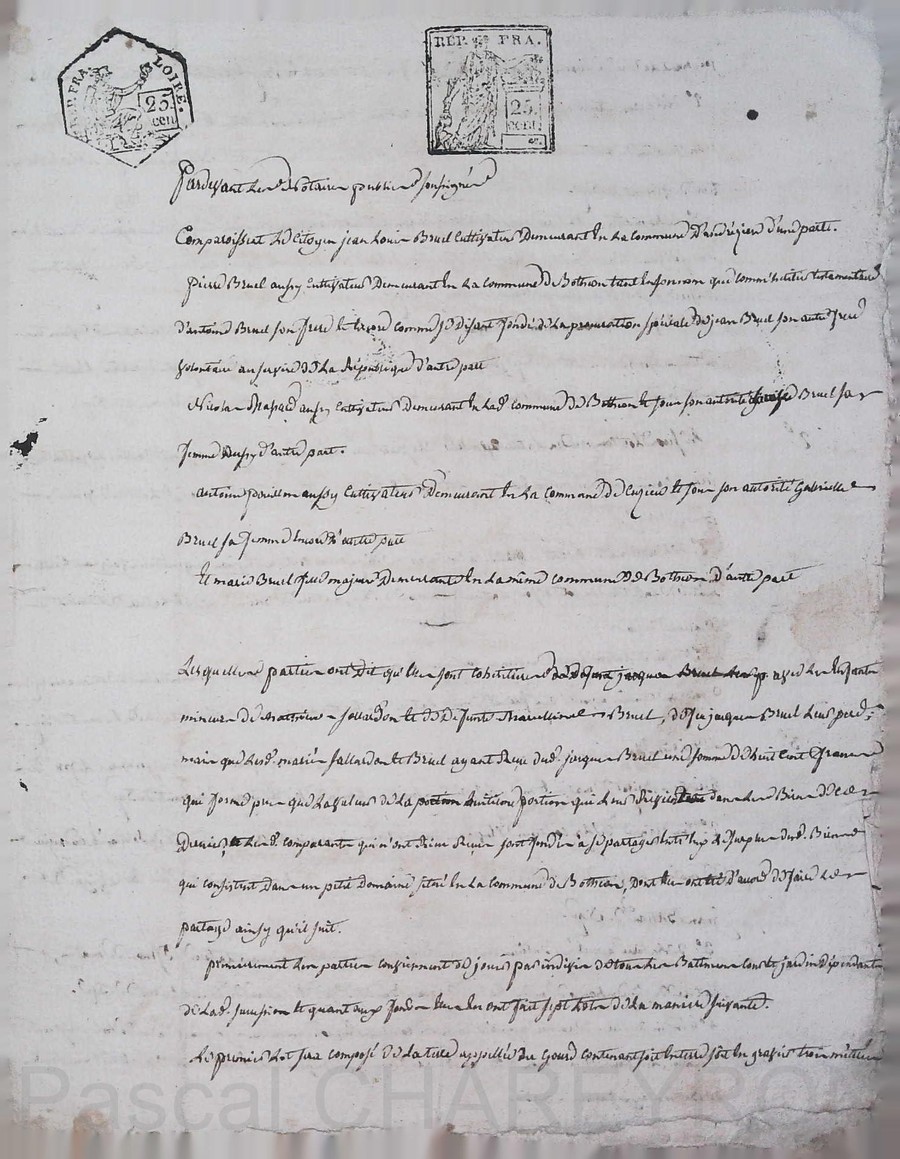 REP. FRA. LOIRE.
25. cen
REP. FRA.
25. cent
Pardevant les Notaires publics soussignés
Comparoissent Le Citoyen jean Louis Bruel Cultivateur Demeurant En La Commune d'une parte.
pierre Bruel aussy Cultivateur Demeurant En La Commune De Botheon tant En son nom que comme heritier testamentaire
d'antoine Bruel son frere Et Encore comme se Disant fondé de La procuration spéciale de jean Bruel son autre frere
volontaire au service de La République d'autre part
Nicolas aussy Cultivateur Demeurant En Lad. commune de Botheon Et sous son autorité Bruel sa
femme d'autre part.
antoine aussy Cultivateur Demeurant En La Commune de Cuzieu Et sous son autorité Gabrielle
Bruel sa femme Encore d'autre part
Et marie Bruel fille majeure Demeurante En La même commune De Botheon D'autre part
Lesquelles parties ont Dit qu'elles sont cohéritieres avec Les Enfants
mineurs de Mathieu Et de Defunte Marcelline Bruel, de feu jacques Bruel Leur pere,
mais que Lesd. mariés Et Bruel ayant Reçu dud. jacques Bruel une somme de huit Cent francs
qui forme plus que La valeur de La portion qui Leur dans Les Biens de ce
Dernier, Lesd. comparants qui n'ont Rien Reçu sont fondés à se partager Entr'eux Le surplus desd. Biens
qui consistent Dans un petit Domaine situé En La Commune de Botheon, Dont Elles ont été d'accord de faire Le
partage ainsy qu'il suit.
premierement Les parties conviennent de jouir par indivis de tous Les Batiments Cour Et jardin Dépendants
de Lad. succession Et quant aux fonds Elles Les ont fait sept Lots de La maniere suivante.
Le premier Lot sera composé de La terre appellée Du Gourd contenant soit En terre soit En gravier trois
Pascal CHAREYRON